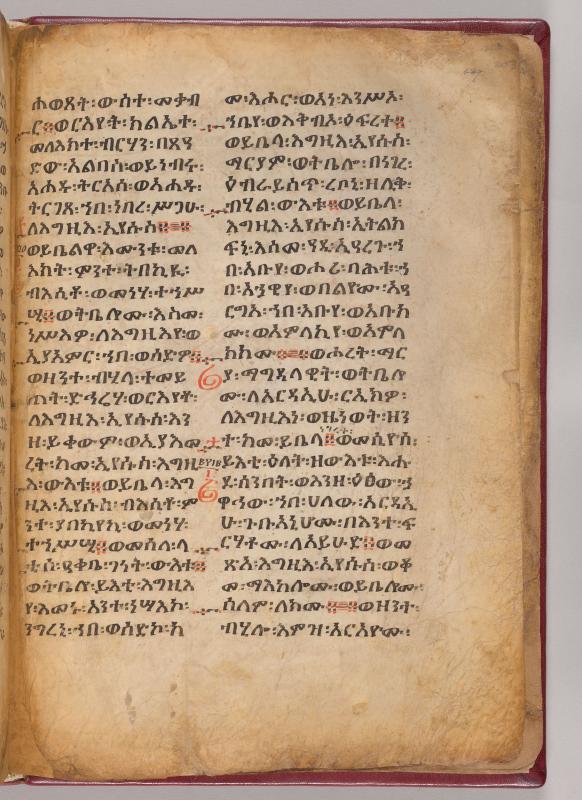 ሐወጸት፡ውስተ፡መቃብ
ር፡ወርእየት፡ክልኤተ፡
መላእክተ፡ብርሃን፡በጸዓ
ድው፡አልባስ፡ወይነብሩ፡
አሐዱ፡ትርአሰ፡ወአሐዱ፡
ትርገጸ፡ኀበ፡ነበረ፡ሥጋሁ፡
ለእግዚእ፡ኢየሱስ።
ወይቤልዋ፡እሙንቱ፡መላ
እክት፡ምንተ፡ትበኪዪ፡
ብእሲቶ፡ወመነሃ፡ተኀሥ
ሢ።ወትቤሎሙ፡እስመ፡
ነሥእዎ፡ለእግዚእየ፡ወ
ኢያአምር፡ኀበ፡ወሰድዎ።
ወዘንተ፡ብሂላ፡ተመይ
ጠት፡ድኅሬሃ፡ወርእየቶ
ለእግዚእ፡ኢየሱስ፡እን
ዘ፡ይቀውም፡ወኢያእመ
ረት፡ከመ፡ኢየሱስ፡እግዚ
እ፡ውእቱ።ወይቤላ፡እግ
ዚእ፡ኢየሱስ፡ብእሲቶ፡ም
ንተ፡ያበኪየኪ፡ወመነሃ፡
ተኀሥሢ።ወመሰላ፡ላ
ቲሰ፡ዐቃቤ፡ገነት፡ውእቱ።
ወትቤሎ፡ይእቲ፡እግዚእ
የ፡እመኑ፡አንተ፡ነሣእኮ፡
ንግረኒ፡ኀበ፡ወሰድኮ፡ከ
መ፡እሖር፡ወእነ፡እንሥኦ፡
ኀቤየ፡ወእቅብኦ፡ዕፍረተ።
ወይቤላ፡እግዚእ፡ኢየሱስ፡
ማርያም፡ወትቤሎ፡በነገረ፡
ዕብራይስጥ፡ረቡኒ፡ዘሊቅ፡
ብሂል፡ውእቱ።ወይቤላ፡
እግዚእ፡ኢየሱስ፡ኢትልክ
ፍኒ፡እስመ፡ዓዲ፡ኢዓረጉ፡ኀ
በ፡አቡየ፡ወሑሪ፡ባሕቱ፡ኀ
በ፡አኀዊየ፡ወበልዮሙ፡አዓ
ርግ፡ኀበ፡አቡየ፡ወአቡክ
ሙ፡ወአምላኪየ፡ወአምላ
ክክሙ።ወሖረት፡ማር
ያ፡ማግዳላዊት፡ወትቤሎ
ሙ፡ለአርዳኢሁ፡ርኢክዎ፡
ለእግዚእነ፡ወዜነወት፡ዘን
ተ፡ከመ፡ይቤላ።ወመሲዮ፡
ይእቲ፡ዕለት፡ዘውእቱ፡እሑ
ድ፡ሰንበት፡ወእንዘ፡ዕፅው፡ኆ
ዋኅው፡ኀበ፡ሀለው፡አርዳኢ
ሁ፡ጉቡአኒሆሙ፡በእንተ፡ፍ
ርሃቶሙ፡ለአይሁድ።ወመ
ጽአ፡እግዚእ፡ኢየሱስ፡ወቆ
መ፡ማእከሎሙ፡ወይቤሎሙ፡
ሰላም፡ለክሙ።ወዘንተ፡
ብሂሎ፡እምዝ፡አርአዮሙ፡